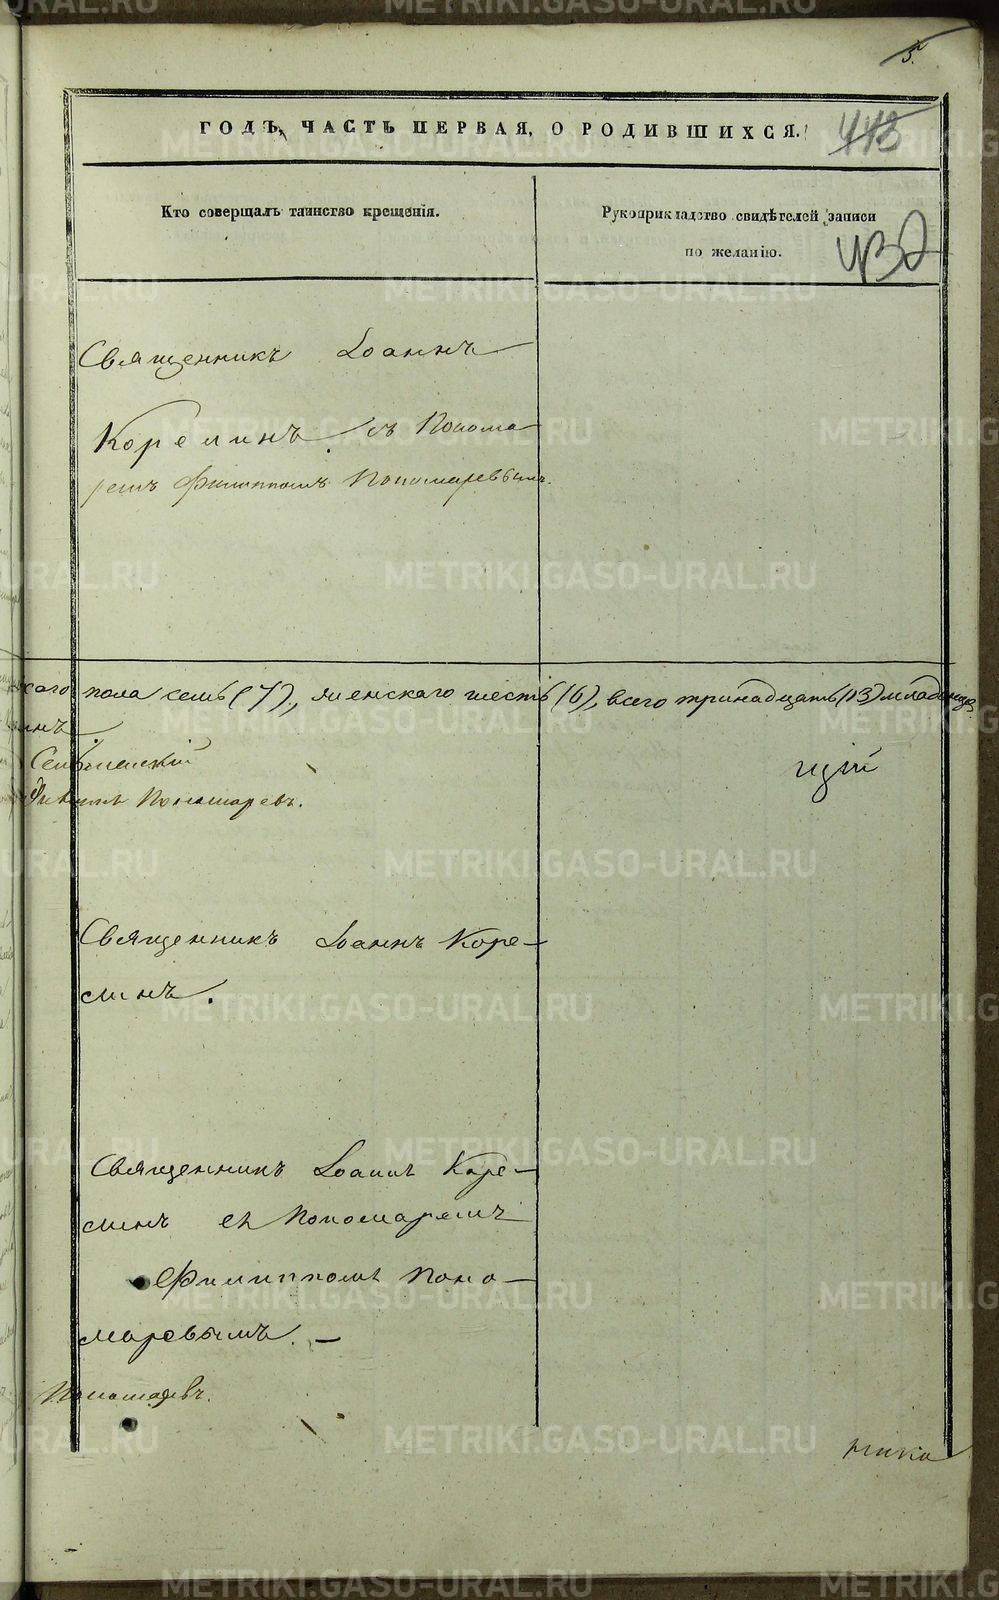 5.
ГОДЪ, ЧАСТЬ ПЕРВАЯ, О РОДИВШИХСЯ.
443
Кто совершалъ таинство крещенія.
Рукоприкладство свидѣтелей записи
по желанію.
432
Священникъ Іоаннъ
Кореминъ съ Понома
ремъ Филиппомъ Пономаревымъ.
скаго пола семь (7), женскаго шесть (6), всего тринадцать (13) младенце
инъ
щій
Филиппъ Пономаревъ.
Священникъ Іоаннъ Коре-
минъ.
Священникъ Іоаннъ Коре-
минъ съ Пономаремъ
Филиппомъ Поно-
маревымъ. -
Пономаревъ.
METRIKI.GASO-URAL.RU